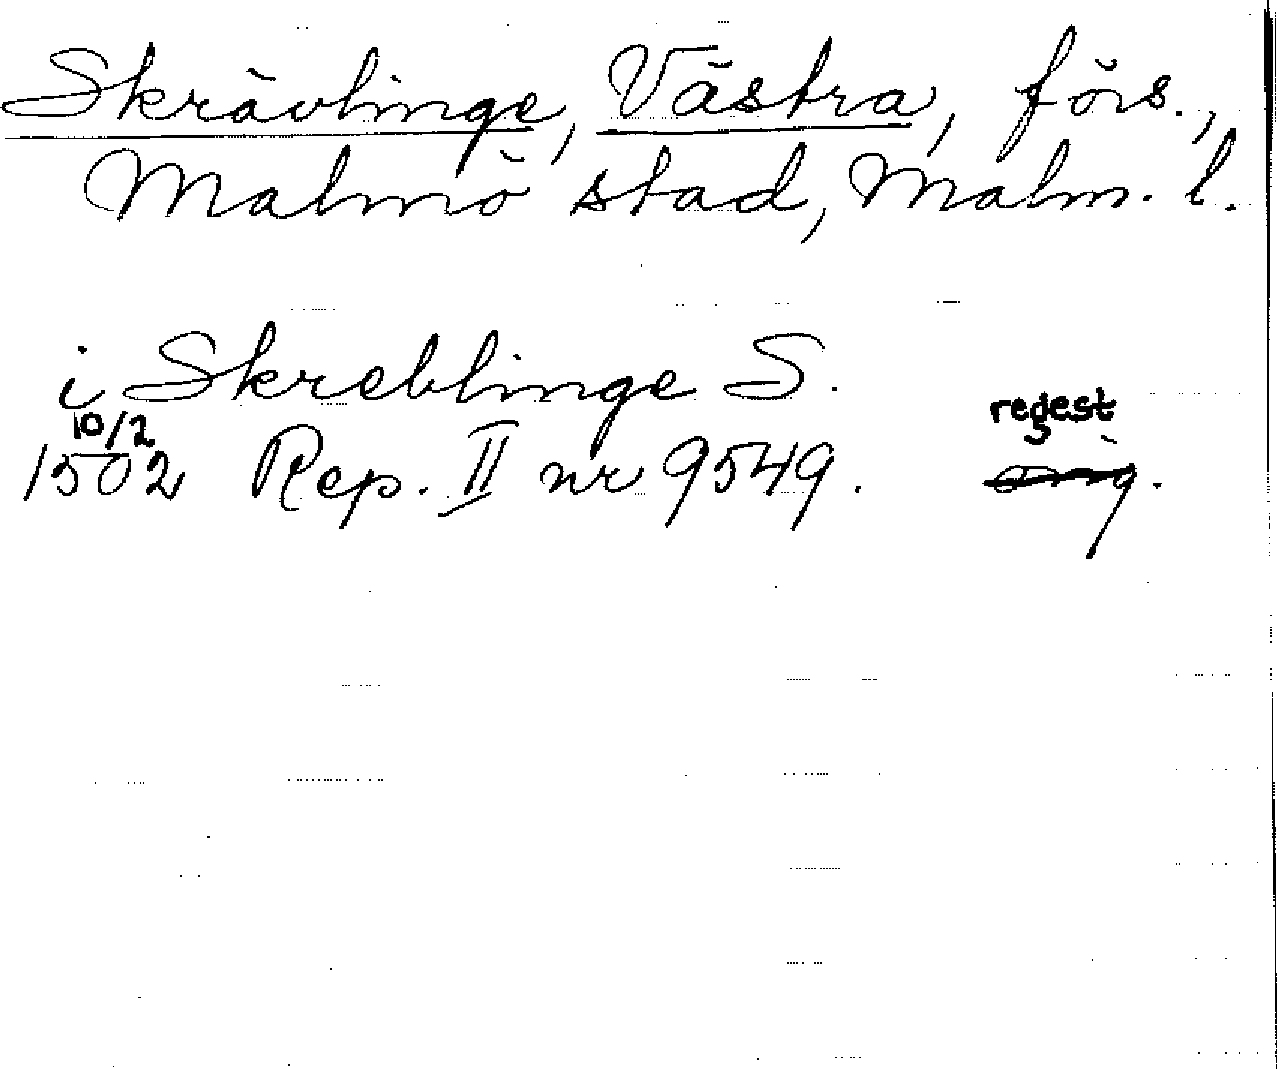 Skrävlinge, Västra, förs.,
Malmö stad, Malm. l.
i Skreblinge S.
10/2 regest
1502 Rep. II nr 9549. orig.